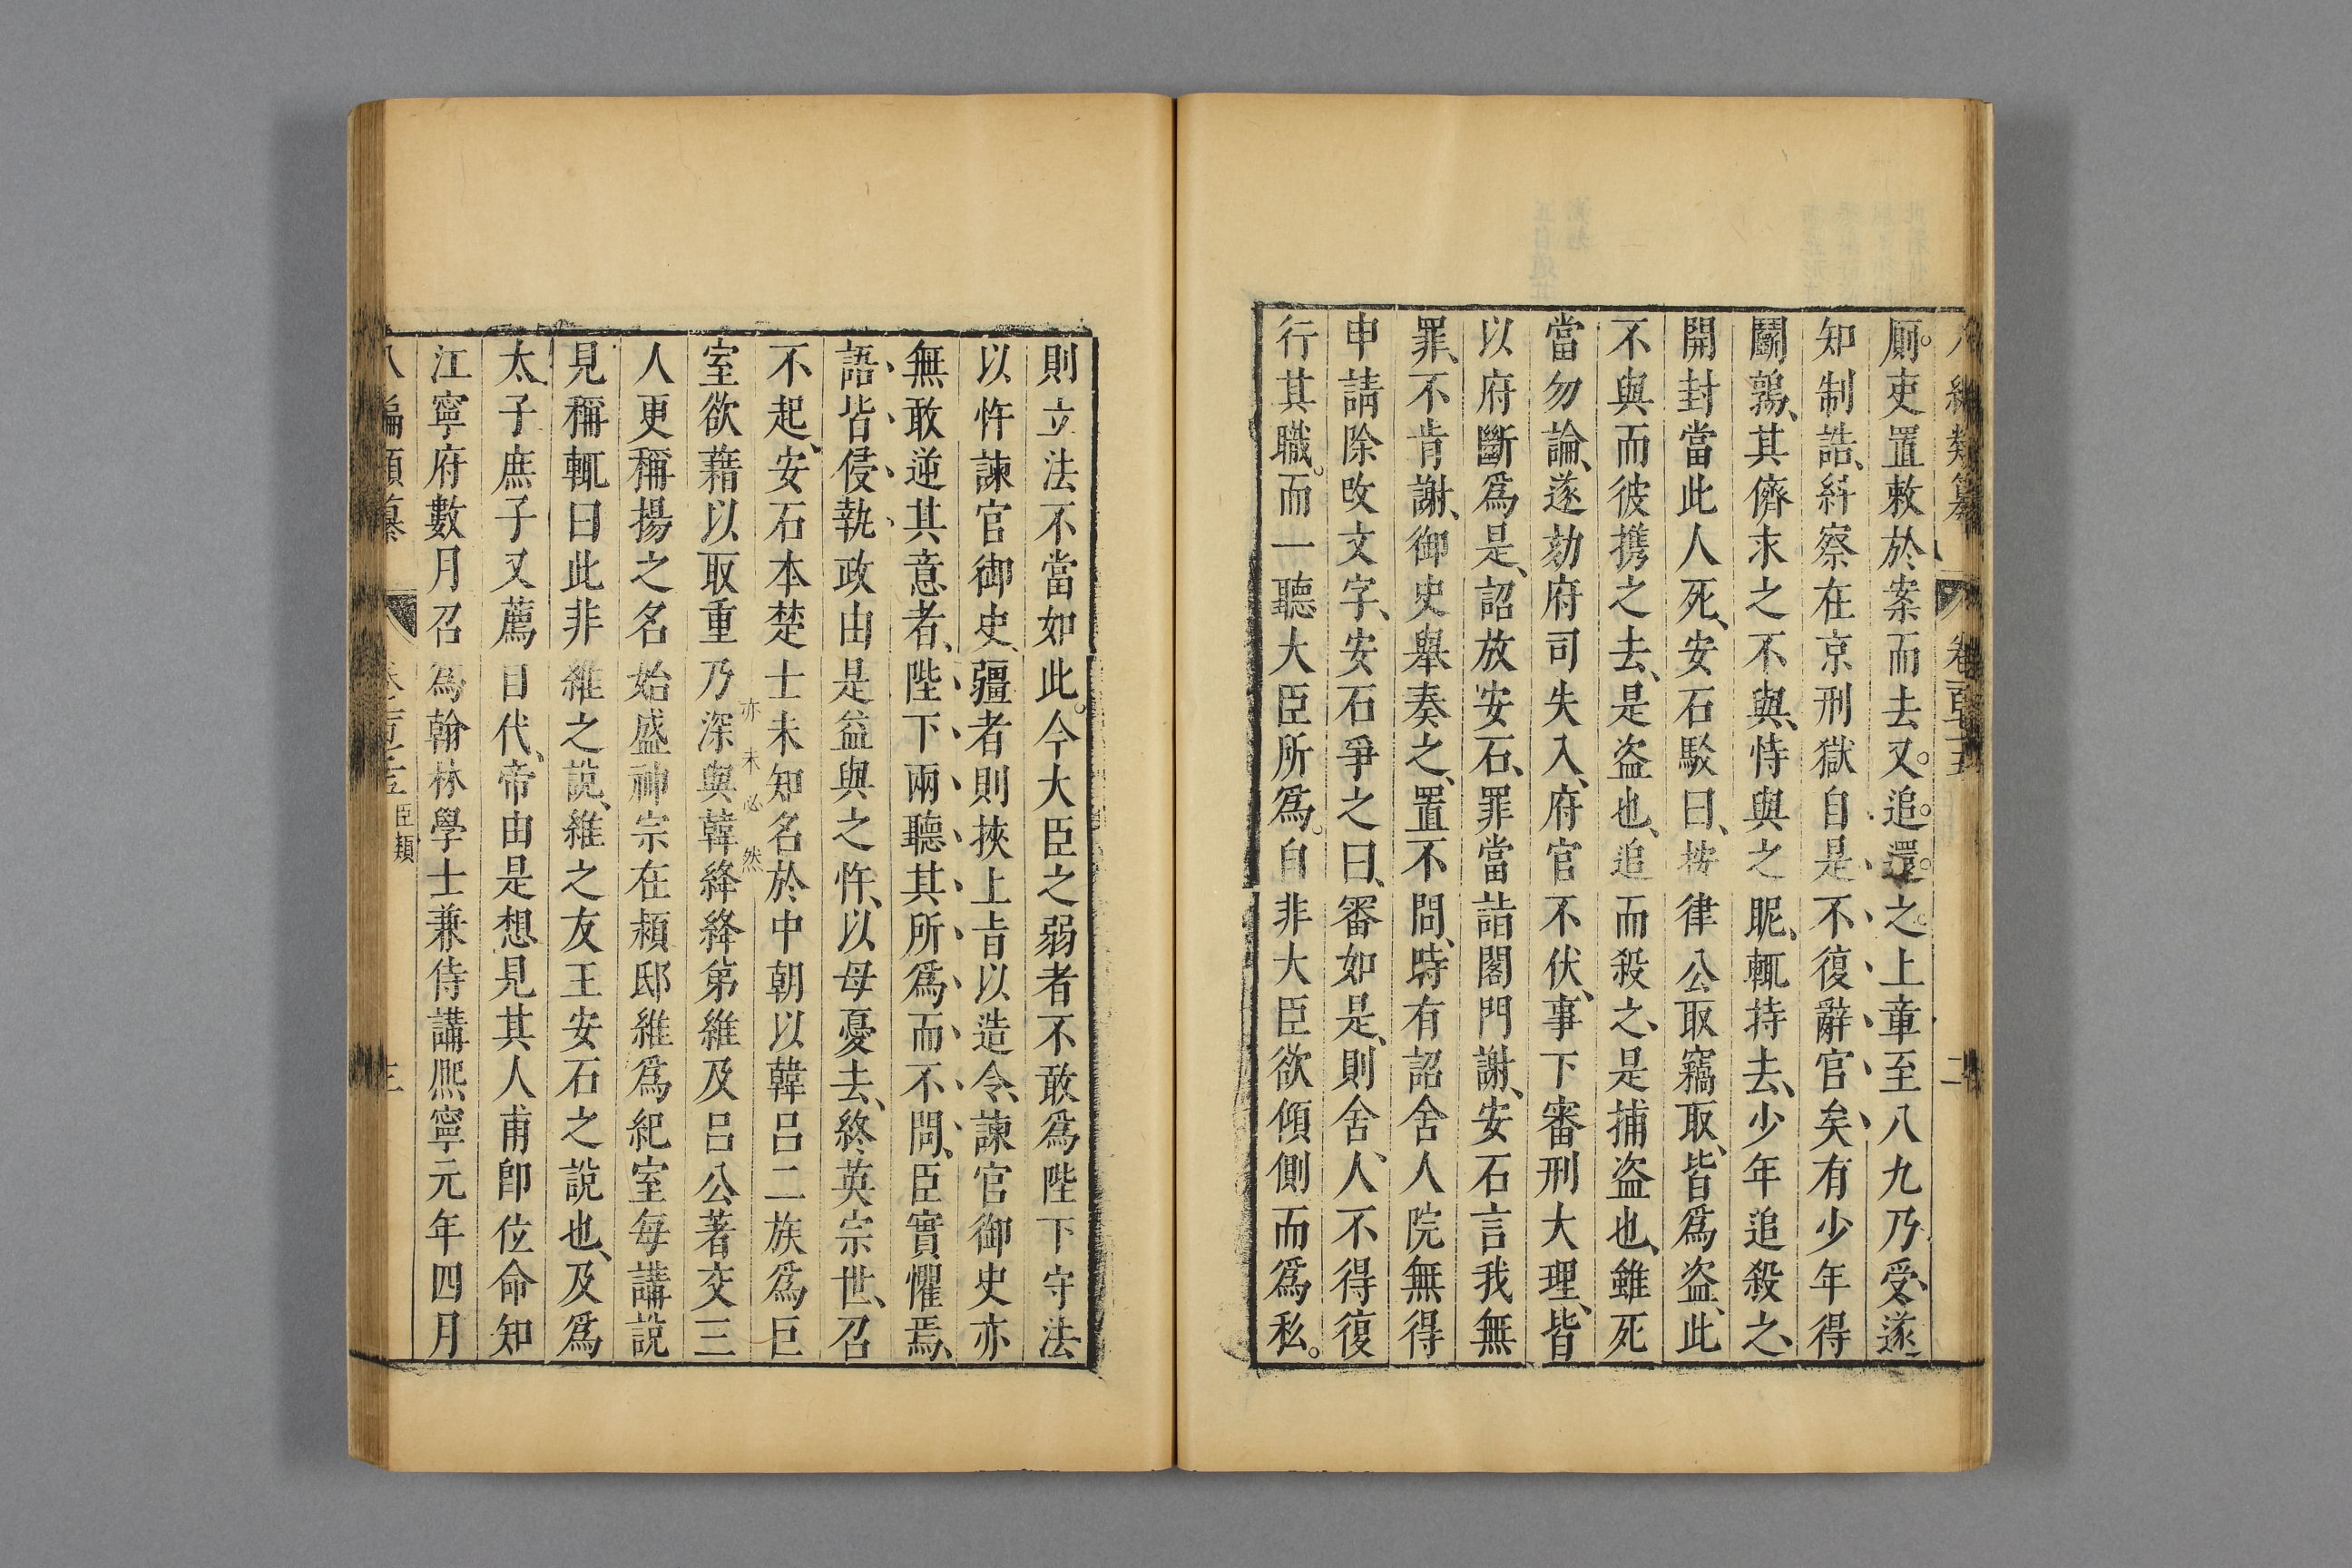 八編類纂 卷一百三十五 二
厠。吏置敕於案而去又。追。還。之。上章至八九乃受、遂
知制誥、糾察在京刑獄自是不復辭官矣有少年得
鬭鶉、其儕求之不與、恃與之昵、輒持去、少年追殺之、
開封當此人死、安石駁曰、按律公取竊取、皆爲盜、此
不與而彼携之去、是盜也、追而殺之、是捕盜也、雖死
當勿論、遂劾府司失入、府官不伏、事下審刑大理、皆
以府斷爲是、詔放安石、罪當詣閤門謝、安石言我無
罪、不肯謝、御史舉奏之、置不問、時有詔舍人院無得
申請除攺文字、安石爭之曰、審如是、則舍人、不得復
行其職。而一聽大臣所爲。自非大臣欲傾側而爲私。
則立法不當如此。今大臣之弱者不敢爲陛下守法
以忤諫官御史、彊者則挾上旨以造令、諫官御史亦
無敢逆其意者、陛下兩聽其所爲而不問、臣實懼焉、
語皆侵執政由是益與之忤、以母憂去、終英宗世、召
不起、安石本楚士未知名於中朝以韓呂二族爲巨
亦未必然
室欲藉以取重乃深與韓絳絳第維及呂公著交三
人更稱揚之名始盛神宗在潁邸維爲紀室每講說
見稱輒曰此非維之說、維之友王安石之說也、及爲
太子庶子又薦自代、帝由是想見其人甫卽位命知
江寧府數月召爲翰林學士兼侍講熈寧元年四月
八編類纂 臣類 三